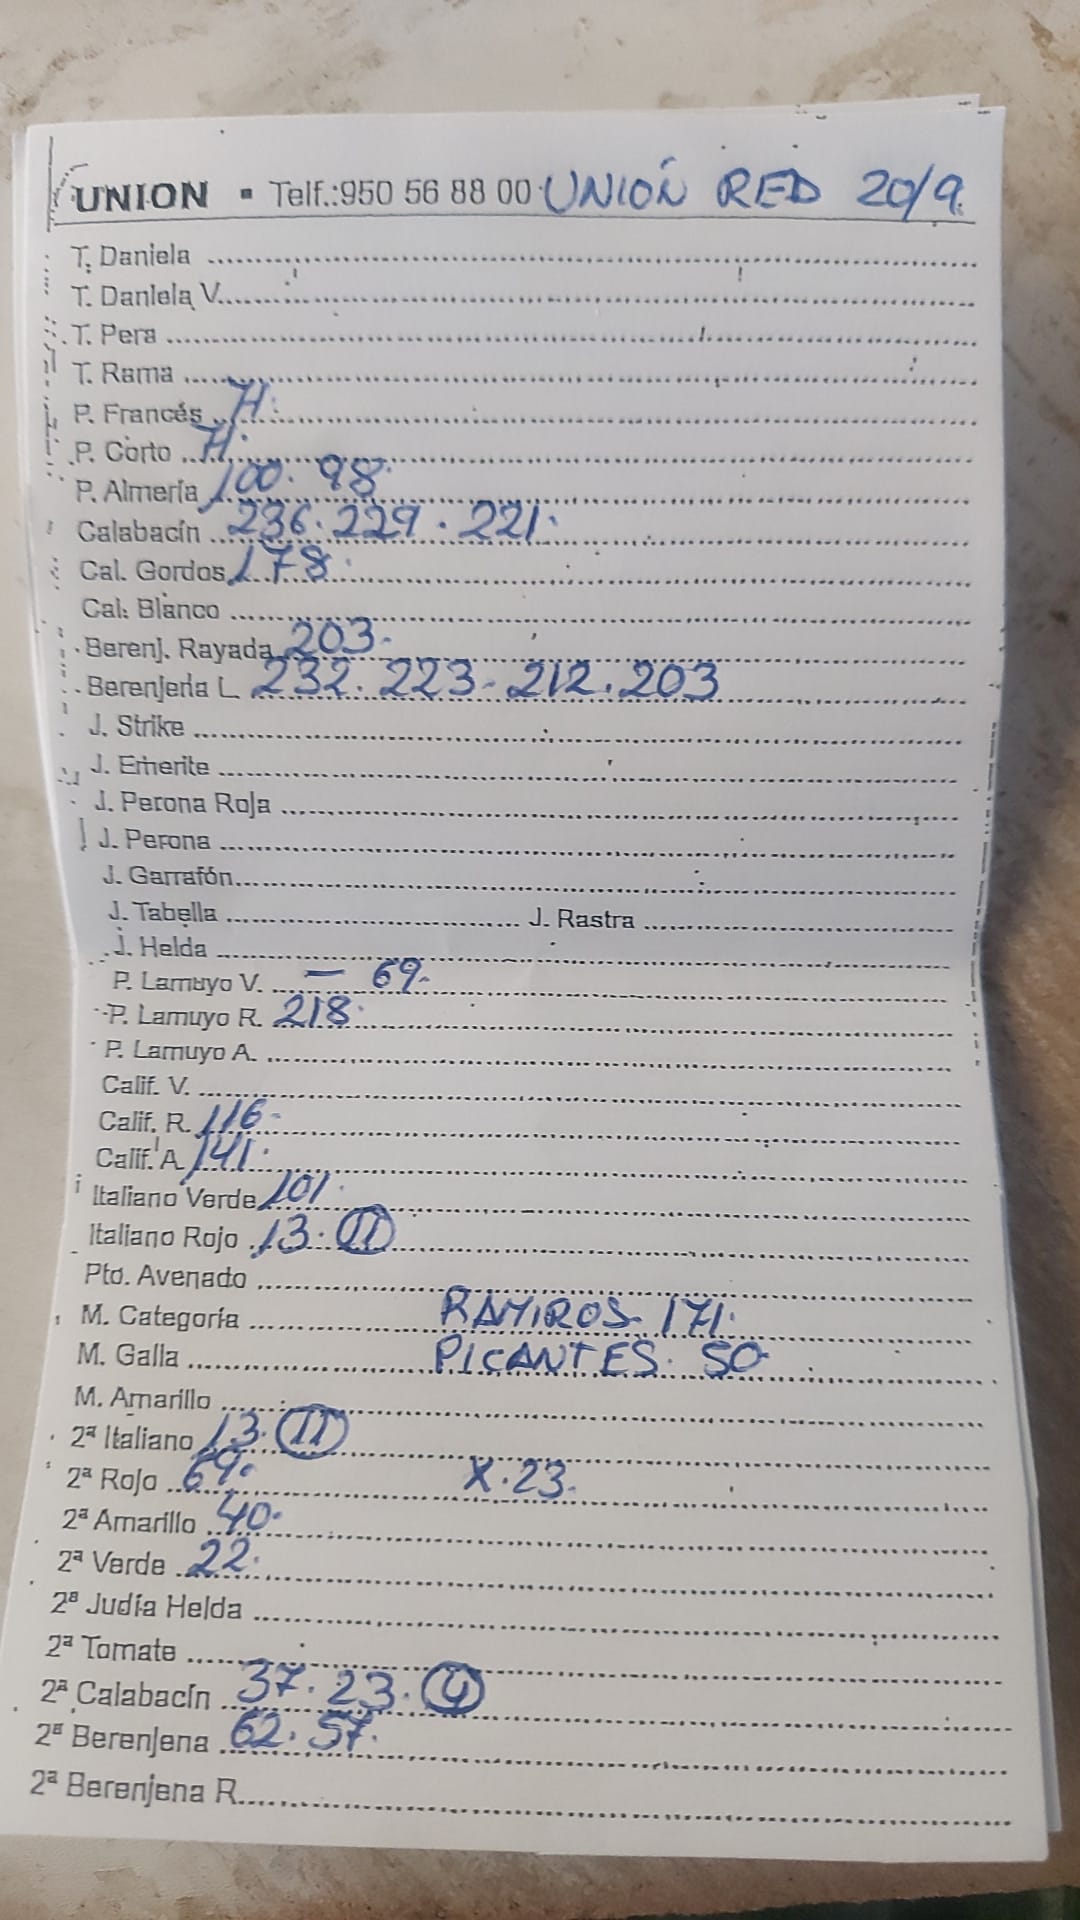 UNION ▪ Telf.:950 56 88 00 UNIÓN RED 20/9.
T. Daniela
T. Daniela V.
T. Pera
T. Rama
P. Francés H.
P. Corto H.
P. Almería 100. 98.
Calabacín 236. 229. 221.
Cal. Gordos 178.
Cal. Blanco
Berenj. Rayada 203.
Berenjena L. 232. 223. 212. 203
J. Strike
J. Emerite
J. Perona Roja
J. Perona
J. Garrafón
J. Tabella J. Rastra
J. Helda
P. Lamuyo V. — 69.
P. Lamuyo R. 218.
P. Lamuyo A.
Calif. V.
Calif. R. 116.
Calif. A. 141.
Italiano Verde 101.
Italiano Rojo 13. 11
Pto. Avenado
M. Categoría RAMIROS. 171.
M. Galla PICANTES. 50
M. Amarillo
2ª Italiano 13. 11
2ª Rojo 69. X. 23.
2ª Amarillo 40.
2ª Verde 22.
2ª Judía Helda
2ª Tomate
2ª Calabacín 37. 23. 4
2ª Berenjena 62. 57.
2ª Berenjena R.